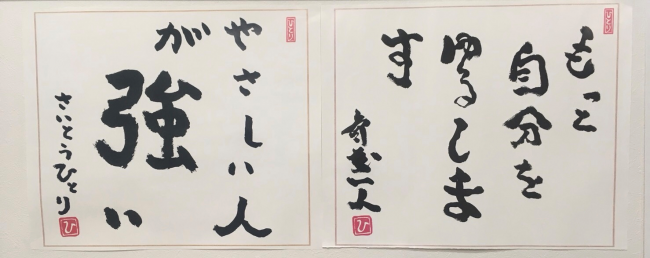 もっと
自分を
ゆるしま
す
斎藤一人
ひ
やさしい人
が
強い
さいとうひとり
ひ